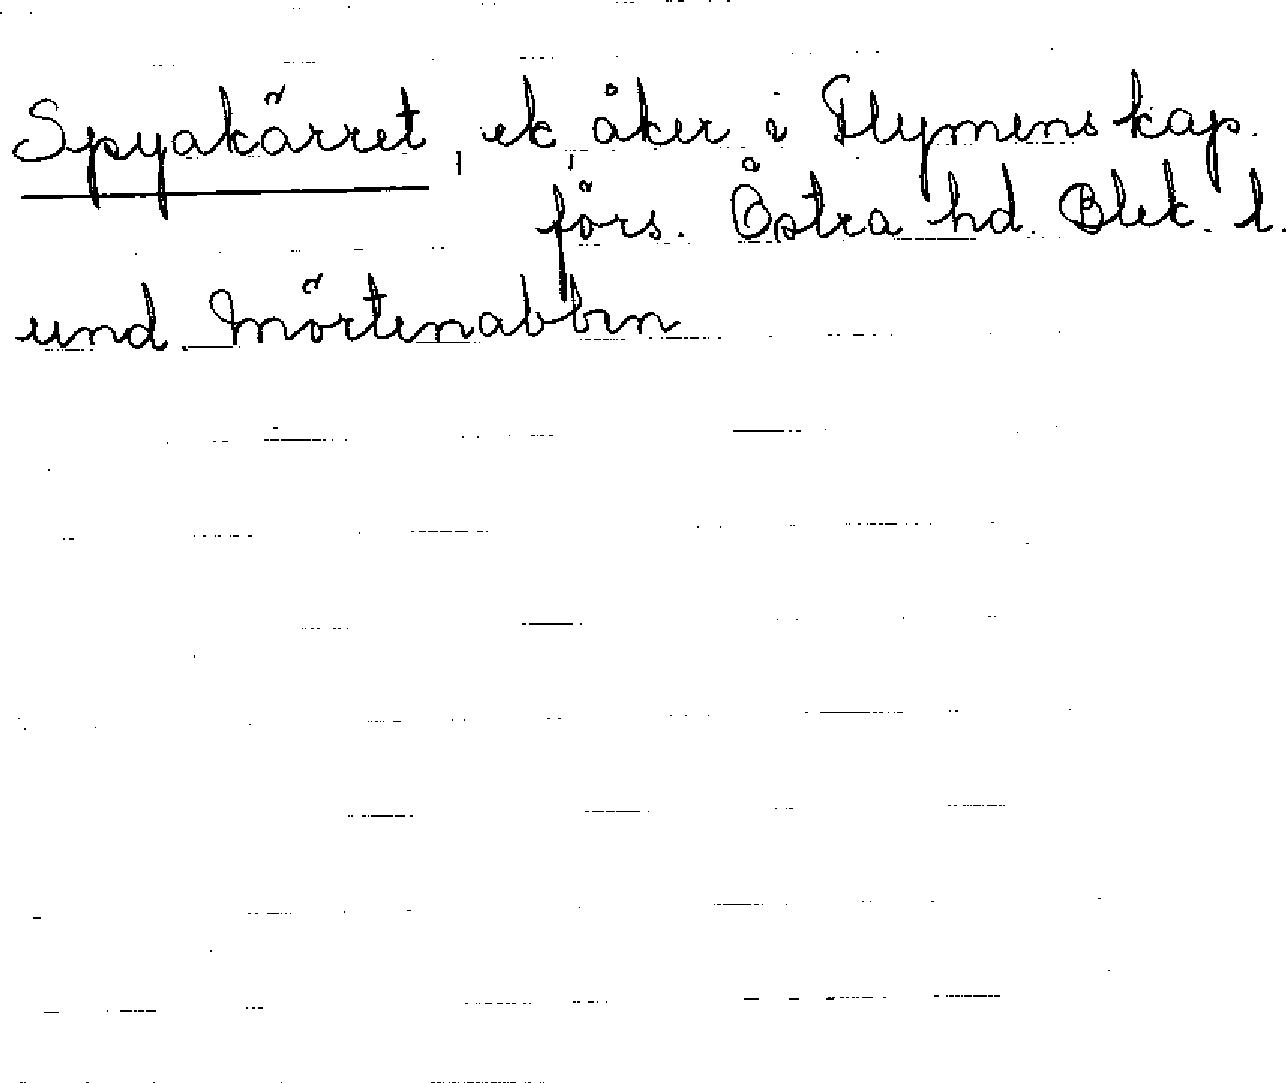 Spyakärret, ek, åker i Flymens kap.
förs. Östra hd. Blek. l.
und. Mörtenabben